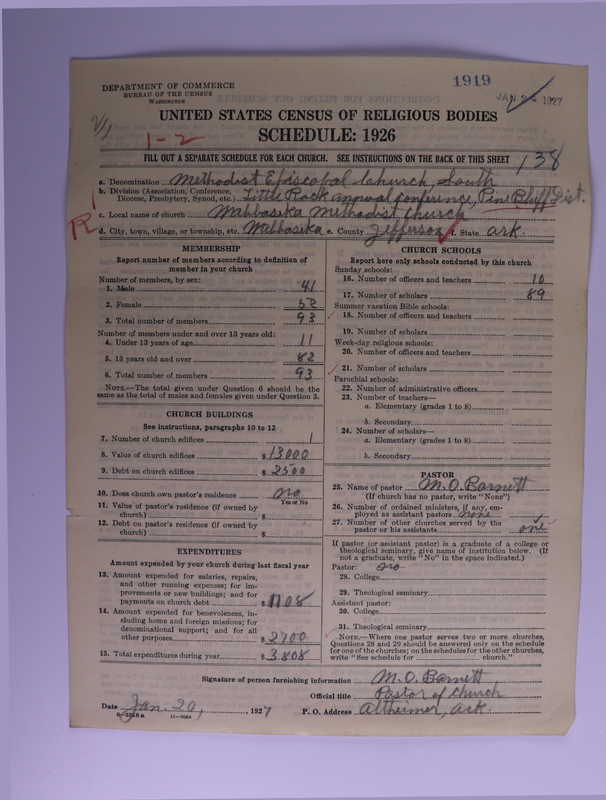 1919
DEPARTMENT OF COMMERCE
BUREAU OF THE CENSUS
WASHINGTON
JAN 2 1927
UNITED STATES CENSUS OF RELIGIOUS BODIES
SCHEDULE: 1926
1-2
138
FILL OUT A SEPARATE SCHEDULE FOR EACH CHURCH. SEE INSTRUCTIONS ON THE BACK OF THIS SHEET
a. Denomination Methodist Episcopal Church, South
b. Division (Association, Conference, Diocese, Presbytery, Synod, etc.) Little Rock annual Conference, Pine Bluff Dist.
c. Local name of church Wabbaseka Methodist church
d. City, town, village, or township, etc. Wabbaseka e. County Jefferson f. State Ark.
MEMBERSHIP
Report number of members according to definition of
member in your church
Number of members, by sex:
1. Male 41
2. Female 52
3. Total number of members 93
Number of members under and over 13 years old:
4. Under 13 years of age 11
5. 13 years old and over 82
6. Total number of members 93
NOTE.—The total given under Question 6 should be the
same as the total of males and females given under Question 3.
CHURCH BUILDINGS
See instructions, paragraphs 10 to 12
7. Number of church edifices 1
8. Value of church edifices $13000
9. Debt on church edifices $2500
10. Does church own pastor's residence no
Yes or No
11. Value of pastor's residence (if owned by
church) $
12. Debt on pastor's residence (if owned by
church) $
EXPENDITURES
Amount expended by your church during last fiscal year
13. Amount expended for salaries, repairs,
and other running expenses; for im-
provements or new buildings; and for
payments on church debt $1108
14. Amount expended for benevolences, in-
cluding home and foreign missions; for
denominational support; and for all
other purposes $2700
15. Total expenditures during year $3808
CHURCH SCHOOLS
Report here only schools conducted by this church
Sunday schools:
16. Number of officers and teachers 10
17. Number of scholars 89
Summer vacation Bible schools:
18. Number of officers and teachers
19. Number of scholars
Week-day religious schools:
20. Number of officers and teachers
21. Number of scholars
Parochial schools:
22. Number of administrative officers
23. Number of teachers—
a. Elementary (grades 1 to 8)
b. Secondary
24. Number of scholars—
a. Elementary (grades 1 to 8)
b. Secondary
PASTOR
25. Name of pastor M. O. Barnett
(If church has no pastor, write "None")
26. Number of ordained ministers, if any, em-
ployed as assistant pastors none
27. Number of other churches served by the
pastor or his assistants one
If pastor (or assistant pastor) is a graduate of a college or
theological seminary, give name of institution below. (If
not a graduate, write "No" in the space indicated.)
Pastor: no
28. College
29. Theological seminary
Assistant pastor:
30. College
31. Theological seminary
NOTE.—Where one pastor serves two or more churches,
Questions 28 and 29 should be answered only on the schedule
for one of the churches; on the schedules for the other churches,
write "See schedule for church."
Signature of person furnishing information M. O. Barnett
Official title Pastor of Church
Date Jan. 20, 1927 P. O. Address Altheimer, Ark.
11—9034